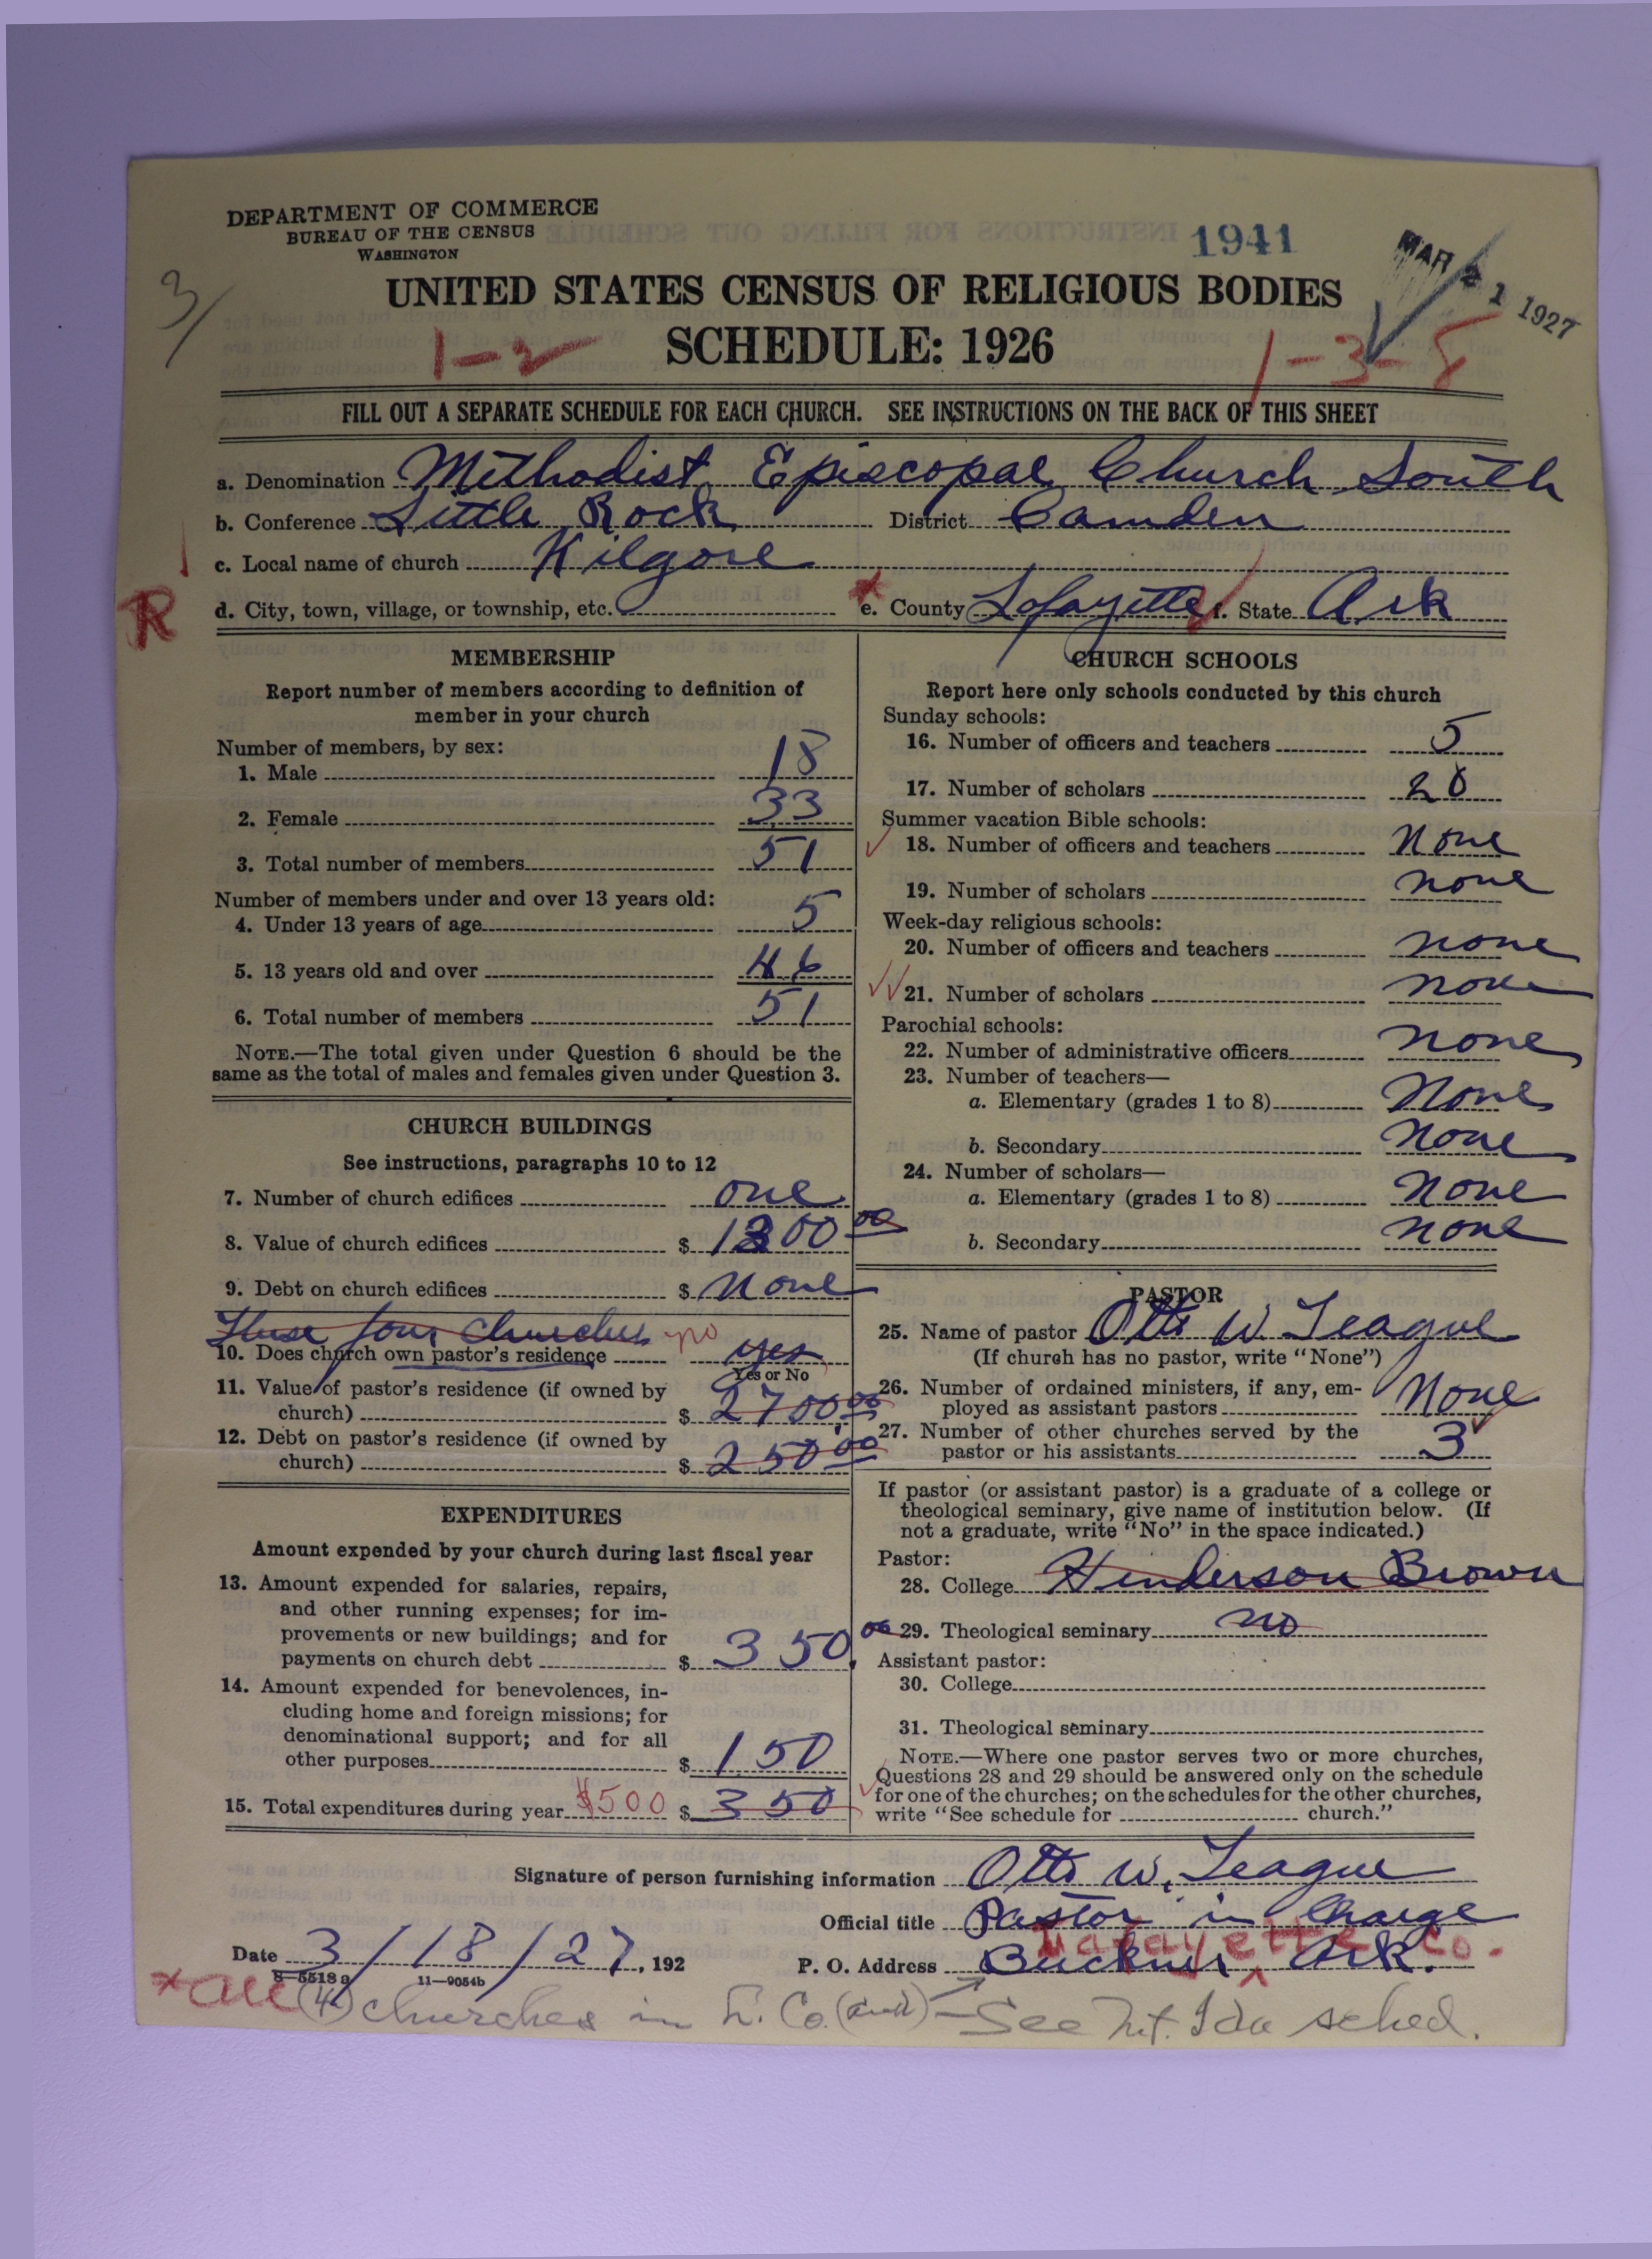 DEPARTMENT OF COMMERCE
BUREAU OF THE CENSUS
WASHINGTON
1941
MAR 21 1927
3/
UNITED STATES CENSUS OF RELIGIOUS BODIES
SCHEDULE: 1926
1-2
1-3-8
FILL OUT A SEPARATE SCHEDULE FOR EACH CHURCH. SEE INSTRUCTIONS ON THE BACK OF THIS SHEET
a. Denomination Methodist Episcopal Church South
b. Conference Little Rock District Camden
c. Local name of church Kilgore
R
d. City, town, village, or township, etc. e. County Lafayette f. State Ark
MEMBERSHIP
Report number of members according to definition of
member in your church
Number of members, by sex:
1. Male 18
2. Female 33
3. Total number of members 51
Number of members under and over 13 years old:
4. Under 13 years of age 5
5. 13 years old and over 46
6. Total number of members 51
NOTE.—The total given under Question 6 should be the
same as the total of males and females given under Question 3.
CHURCH BUILDINGS
See instructions, paragraphs 10 to 12
7. Number of church edifices one
8. Value of church edifices $ 1300 00
9. Debt on church edifices $ None
These four Churches no
10. Does church own pastor's residence yes
Yes or No
11. Value of pastor's residence (if owned by
church) $ 2700 00
12. Debt on pastor's residence (if owned by
church) $ 250 00
EXPENDITURES
Amount expended by your church during last fiscal year
13. Amount expended for salaries, repairs,
and other running expenses; for im-
provements or new buildings; and for
payments on church debt $ 350.00
14. Amount expended for benevolences, in-
cluding home and foreign missions; for
denominational support; and for all
other purposes $ 150
15. Total expenditures during year $500 $ 350
CHURCH SCHOOLS
Report here only schools conducted by this church
Sunday schools:
16. Number of officers and teachers 5
17. Number of scholars 20
Summer vacation Bible schools:
18. Number of officers and teachers None
19. Number of scholars none
Week-day religious schools:
20. Number of officers and teachers none
21. Number of scholars none
Parochial schools:
22. Number of administrative officers none
23. Number of teachers—
a. Elementary (grades 1 to 8) None
b. Secondary None
24. Number of scholars—
a. Elementary (grades 1 to 8) None
b. Secondary none
PASTOR
25. Name of pastor Otto W Teague
(If church has no pastor, write "None")
26. Number of ordained ministers, if any, em-
ployed as assistant pastors None
27. Number of other churches served by the
pastor or his assistants 3
If pastor (or assistant pastor) is a graduate of a college or
theological seminary, give name of institution below. (If
not a graduate, write "No" in the space indicated.)
Pastor:
28. College Henderson Brown
29. Theological seminary no
Assistant pastor:
30. College
31. Theological seminary
NOTE.—Where one pastor serves two or more churches,
Questions 28 and 29 should be answered only on the schedule
for one of the churches; on the schedules for the other churches,
write "See schedule for church."
Signature of person furnishing information Otto W. Teague
Official title Pastor in Charge
Lafayette Co.
Date 3/18/27, 192 P. O. Address Buckner, Ark.
8-5518 a 11—9054b
*All (4) churches in L. Co. (and) - See Mt. Ida sched.